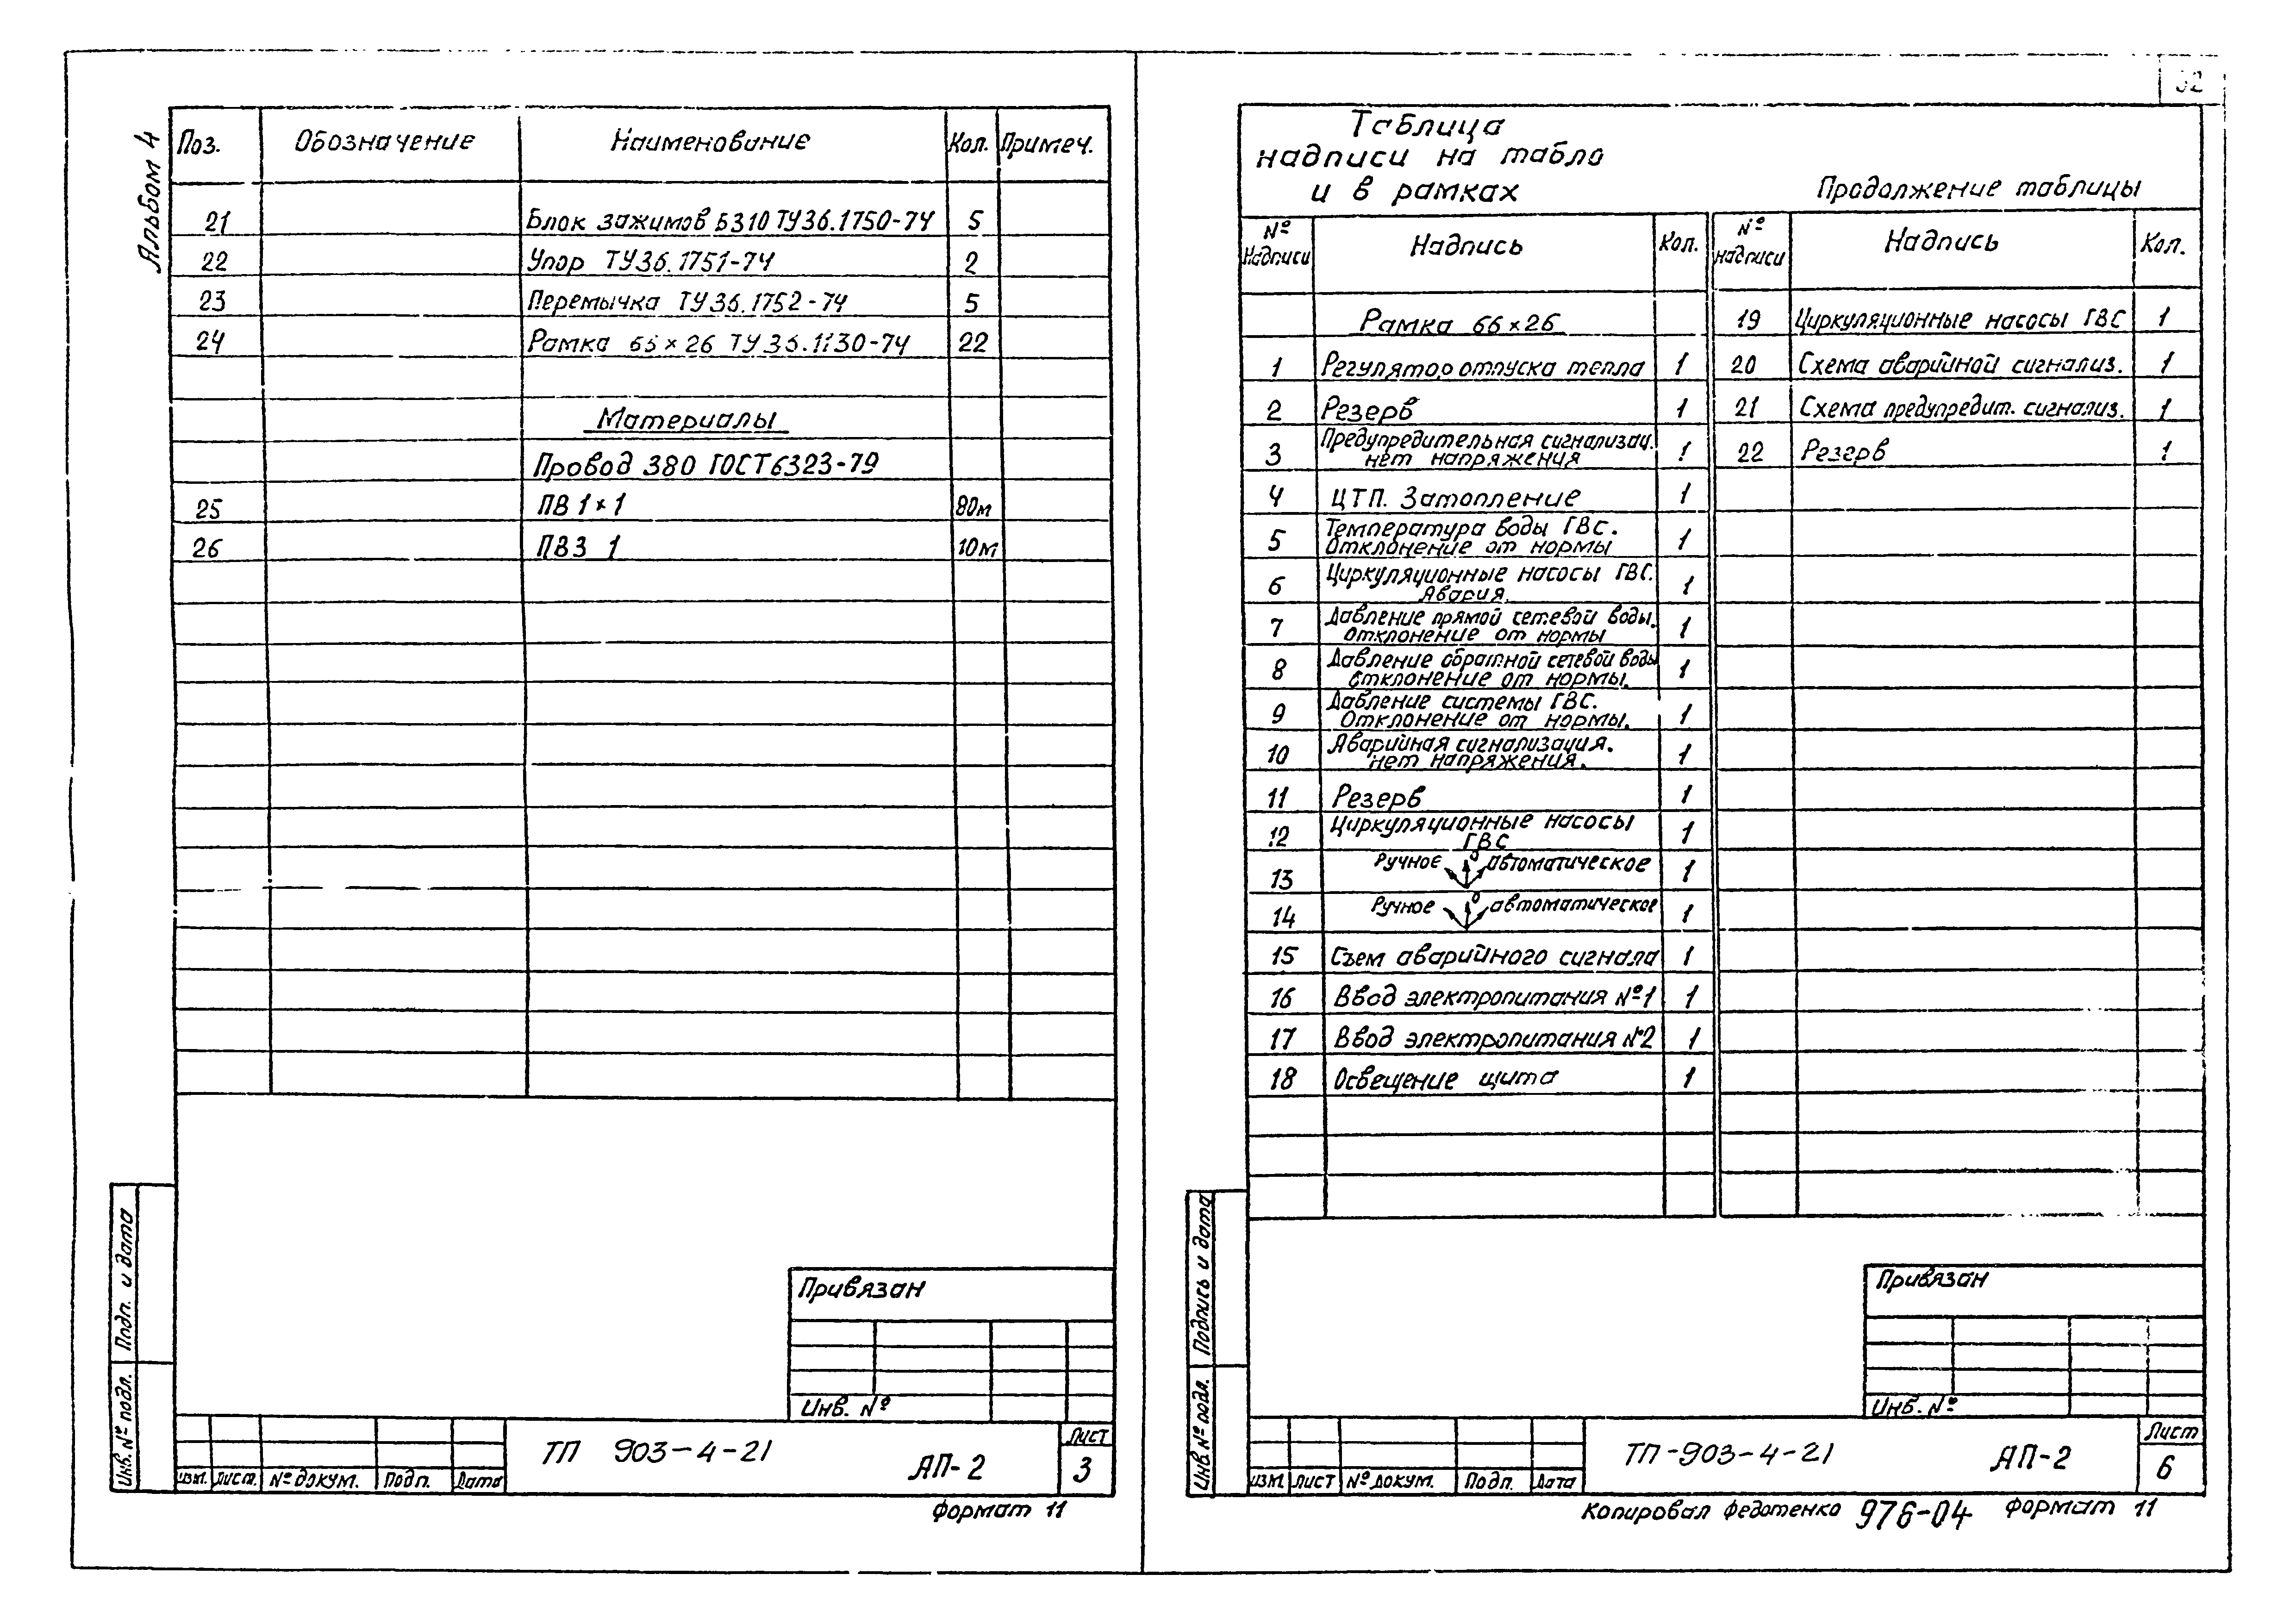 Альбом 4
Поз. Обозначение Наименование Кол. Примеч.
21 Блок зажимов БЗ10 ТУ36.1750-74 5
22 Упор ТУ36.1751-74 2
23 Перемычка ТУ36.1752-74 5
24 Рамка 66×26 ТУ36.1130-74 22
Материалы
Провод 380 ГОСТ 6323-79
25 ПВ 1×1 80м
26 ПВ3 1 10м
Привязан
Инв. №
ТП 903-4-21 АП-2
Лист
3
изм. Лист. № докум. Подп. Дата
Формат 11
Подп. и дата
Инв. № подл.
Таблица
надписи на табло
и в рамках
Продолжение таблицы
№ Надписи Надпись Кол. № надписи Надпись Кол.
Рамка 66×26
1 Регулятор отпуска тепла 1
2 Резерв 1
3 Предупредительная сигнализац.
нет напряжения 1
4 ЦТП. Затопление 1
5 Температура воды ГВС.
Отклонение от нормы 1
6 Циркуляционные насосы ГВС.
Авария. 1
7 Давление прямой сетевой воды.
отклонение от нормы 1
8 Давление обратной сетевой воды
отклонение от нормы. 1
9 Давление системы ГВС.
Отклонение от нормы. 1
10 Аварийная сигнализация.
нет напряжения. 1
11 Резерв 1
12 Циркуляционные насосы
ГВС 1
13 Ручное 0 автоматическое 1
14 Ручное 0 автоматическое 1
15 Съем аварийного сигнала 1
16 Ввод электропитания №1 1
17 Ввод электропитания №2 1
18 Освещение щита 1
19 Циркуляционные насосы ГВС 1
20 Схема аварийной сигнализ. 1
21 Схема предупредит. сигнализ. 1
22 Резерв 1
Привязан
Инв. №
ТП-903-4-21 АП-2
Лист
6
изм. Лист № докум. Подп. Дата
Копировал Федотенко 976-04 Формат 11
Подпись и дата
Инв. № подл.